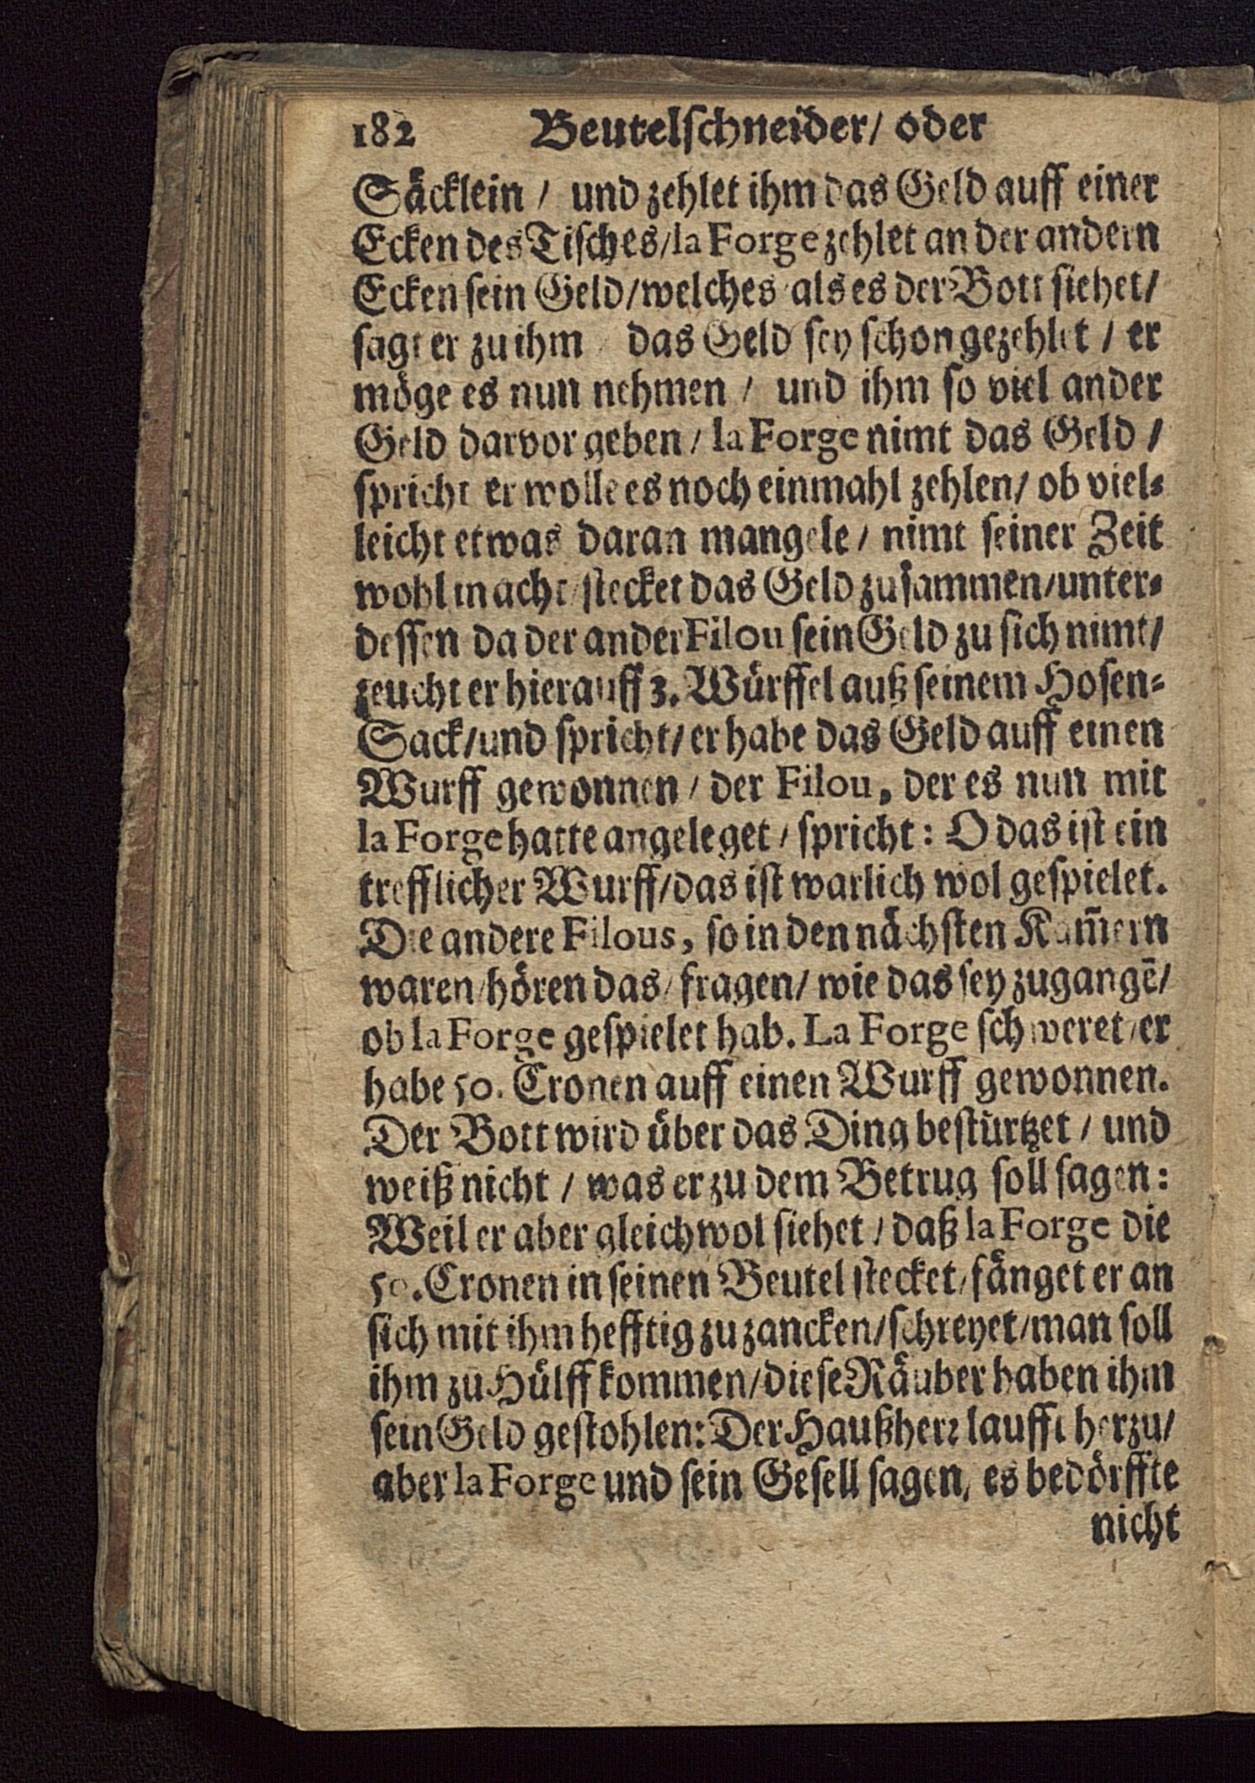 182 Beutelschneider/ oder
Säcklein / und zehlet ihm das Geld auff einer
Ecken des Tisches/la Forge zehlet an der andern
Ecken sein Geld/welches als es der Bott siehet/
sagt er zu ihm / das Geld sey schon gezehlet / er
möge es nun nehmen / und ihm so viel ander
Geld darvor geben / la Forge nimt das Geld /
spricht er wolle es noch einmahl zehlen/ ob viel-
leicht etwas daran mangele / nimt seiner Zeit
wohl in acht / stecket das Geld zusammen/unter-
dessen da der ander Filou sein Geld zu sich nimt/
zeucht er hierauff 3. Würffel auß seinem Hosen-
Sack/und spricht/ er habe das Geld auff einen
Wurff gewonnen / der Filou, der es nun mit
la Forge hatte angeleget / spricht: O das ist ein
trefflicher Wurff/das ist warlich wol gespielet.
Die andere Filous, so in den nächsten Kam̃ern
waren/hören das/ fragen/ wie das sey zugangē/
ob la Forge gespielet hab. La Forge schweret/er
habe 50. Cronen auff einen Wurff gewonnen.
Der Bott wird über das Ding bestürtzet / und
weiß nicht / was er zu dem Betrug soll sagen:
Weil er aber gleichwol siehet / daß la Forge die
50. Cronen in seinen Beutel stecket/fänget er an
sich mit ihm hefftig zu zancken/schreyet/man soll
ihm zu Hülff kommen/diese Räuber haben ihm
sein Geld gestohlen: Der Haußherr laufft herzu/
aber la Forge und sein Gesell sagen, es bedörffte
nicht